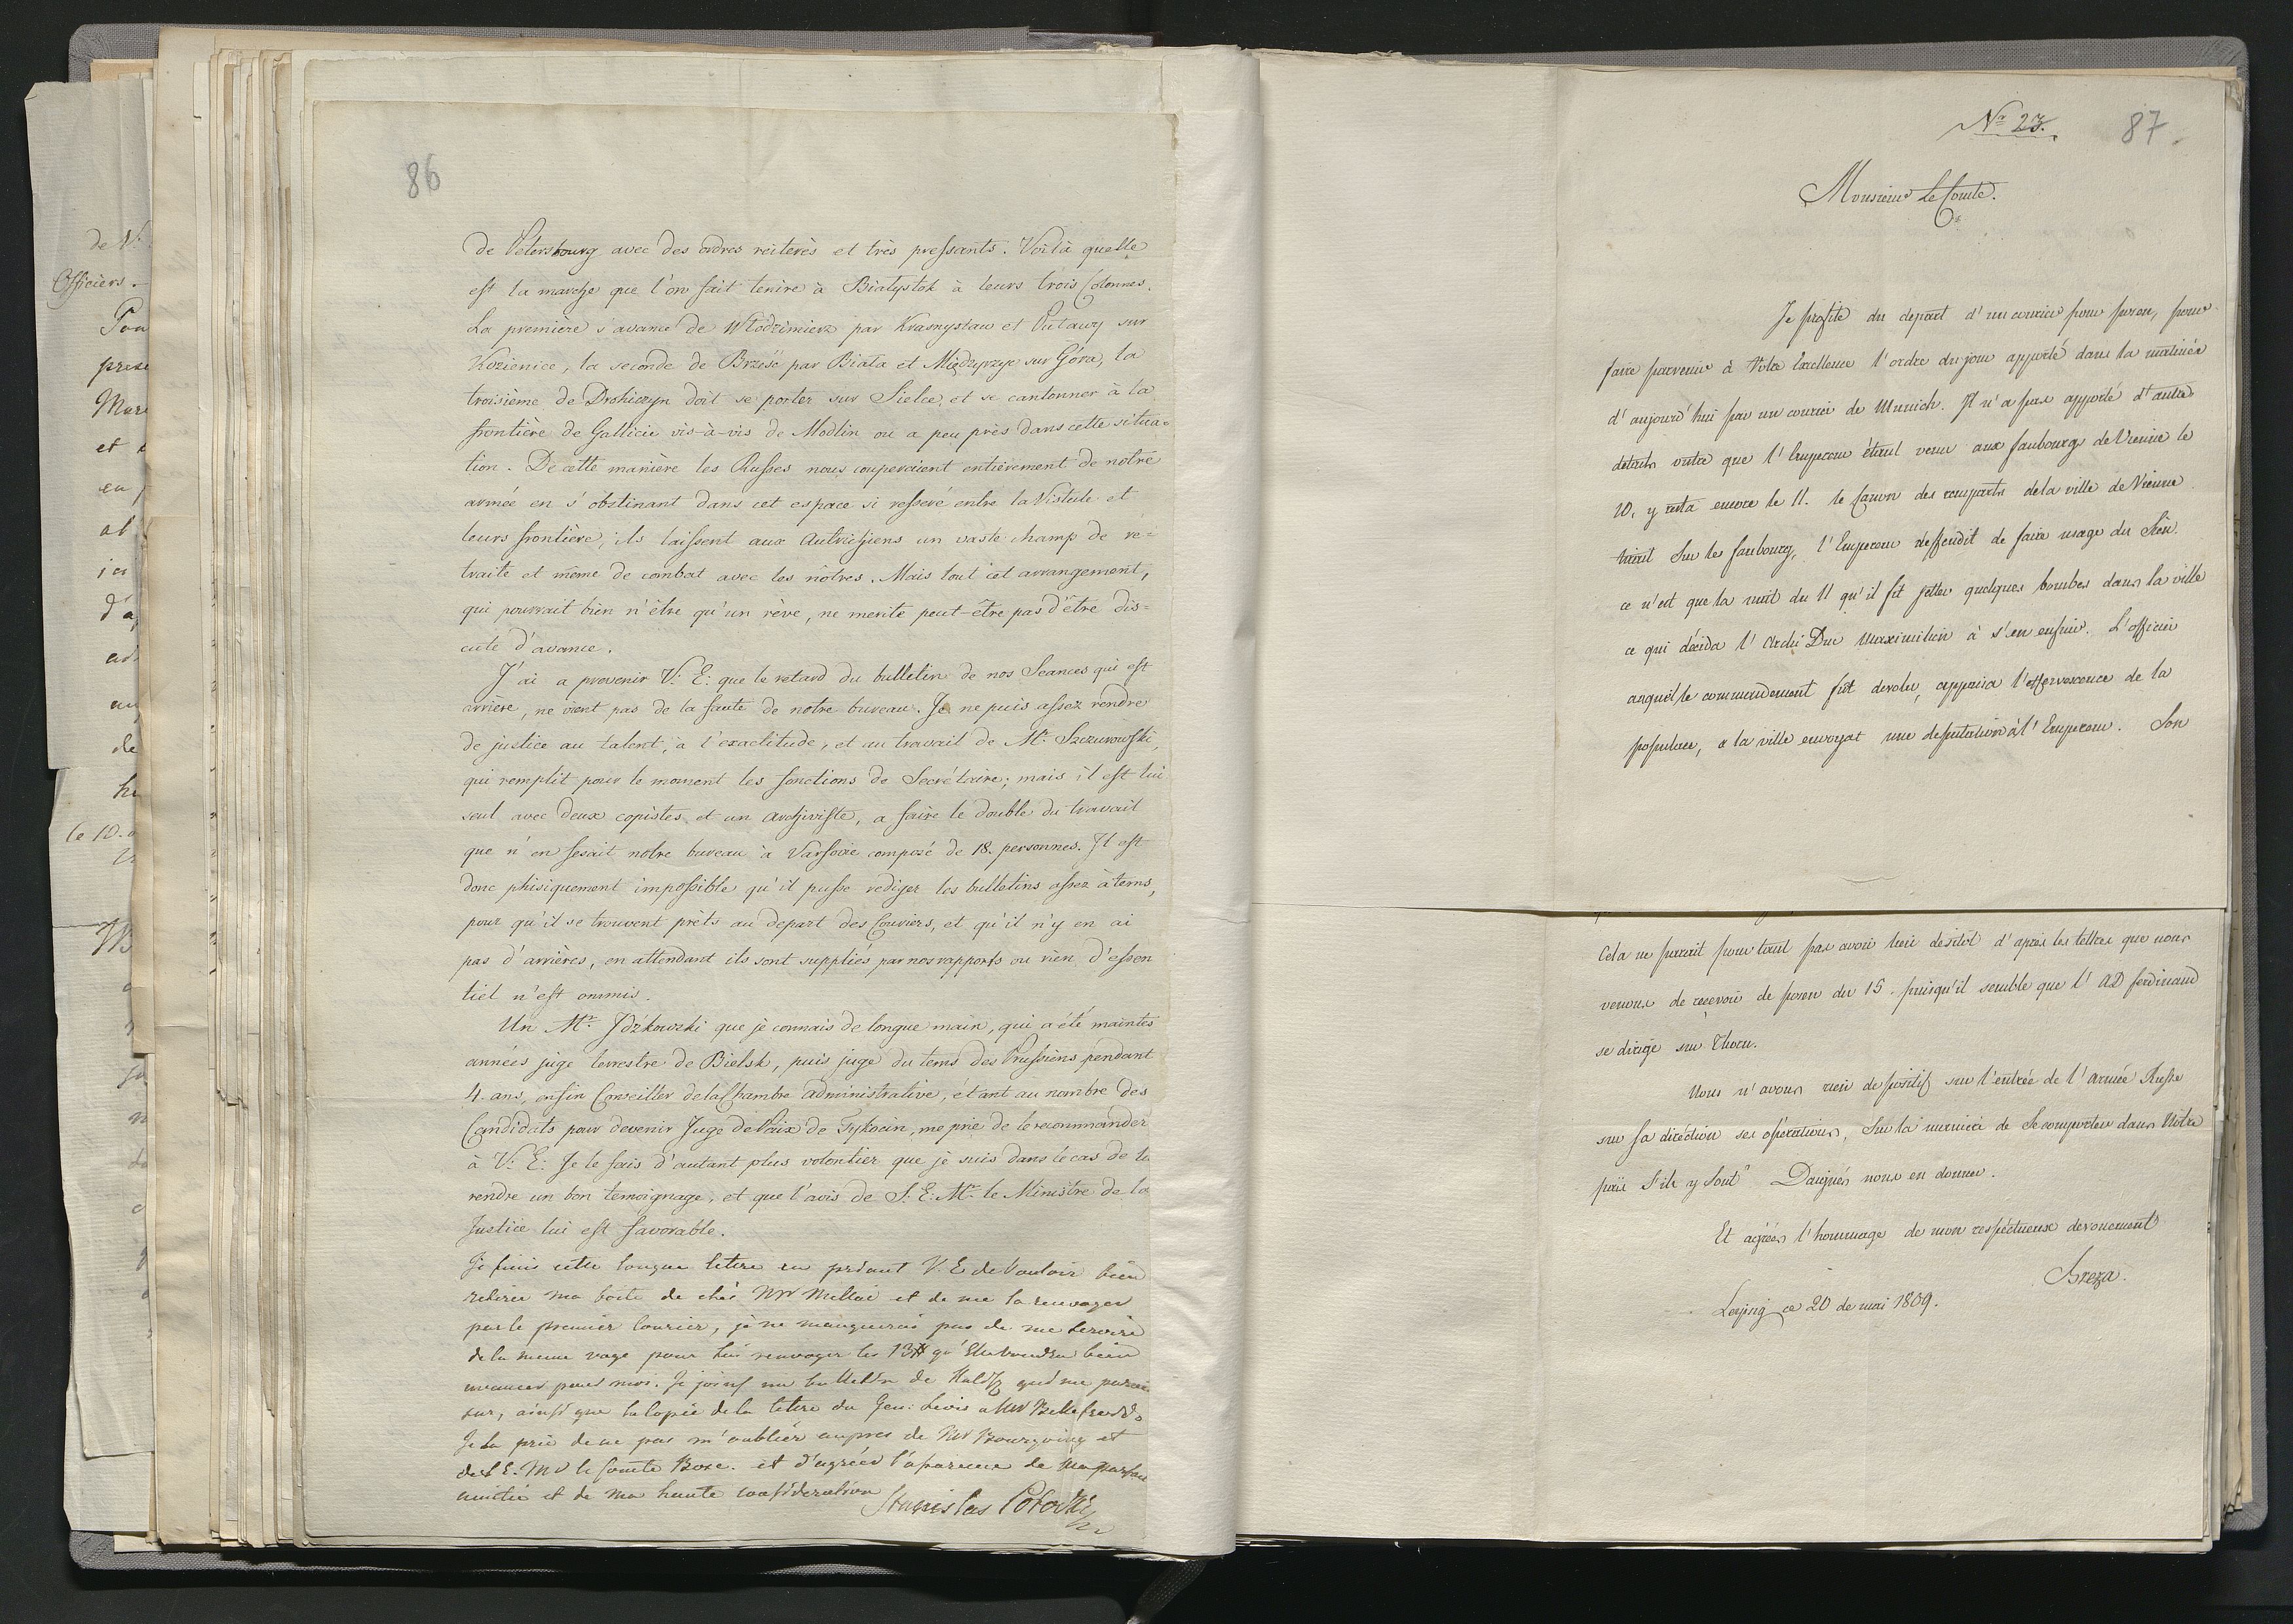 86
de Petersbourg avec des ordres reiterés et très pressants. Voilà quelle
est la marche que l'on fait tenire à Białystok à leurs trois Colonnes.
La première s'avance de Włodzimierz par Krasnystaw et Puławy sur
Kozienice, la seconde de Brześć par Biała et Międzyrzyc sur Góra, la
troisième de Drohiczyn doit se porter sur Sielce, et se cantonner à la
frontière de Gallicie vis-à-vis de Modlin ou a peu près dans cette situa=
tion. De cette manière les Russes nous couperaient entièrement de notre
armée en s'obstinant dans cet espace si resseré entre la Vistule et
leurs frontière, ils laissent aux Autrichiens un vaste champ de re=
traite et même de combat avec les nôtres. Mais tout cet arrangement,
qui pourrait bien n'être qu'un rève, ne merite peut-être pas d'être dis=
cuté d'avance.
J'ai a prevenir V: E: que le retard du bulletin de nos Seances qui est
arrière, ne vient pas de la faute de notre bureau. Je ne puis assez rendre
de justice au talent, à l'exactitude, et au travail de Mr. Szczurowski,
qui remplit pour le moment les fonctions de Secrétaire; mais il est lui
seul avec deux copistes et un archiviste, a faire le double du travail
que n'en fesait notre bureau à Varsovie composé de 18. personnes. Il est
donc phisiquement impossible qu'il puisse rediger les bulletins assez à tems,
pour qu'il se trouvent prêts au depart des Couriers, et qu'il n'y en ai
pas d'arrières, en attendant ils sont suppliés par nos rapports ou rien d'essen
tiel n'est ommis.
Un Mr. Idźkowski que je connais de longue main, qui a été maintes
années juge terrestre de Bielsk, puis juge du tems des Prussiens pendant
4. ans, enfin Conseiller de la Chambre administrative, étant au nombre des
Candidats pour devenir Juge de Paix de Tykocin, me prie de le recommander
à V: E: Je le fais d'autant plus volontier que je suis dans le cas de lu
rendre un bon temoignage, et que l'avis de S: E: Mr. le Ministre de la
Justice lui est favorable.
Je finis cette longue lettre en priant V. E de Vouloir bien
retirer ma boete de chés Mr et de me la renvoyer
par le premier Courier, je ne manquerai pas de me servir
de la meme voye pour lui renvoyer les 13# qu'Elle voudra bien
avancer pour moi. Je joins un bulletin de qui me parait
sur, ainsi que la Copie de la lettre du Gen: a Mr
Je la prie de ne pas m'oublier aupres de Mr Bourgoing et
de S E. Mr le Comte Bose. et d'agréer l'assurance de Ma parfaite
amitié et de Ma haute consideration
Stanislas Potocki
Nr 23.
87
Monsieur le Comte.
Je profite du depart d'un courier pour posen, pour
faire parvenir à Votre Excellence l'ordre du jour apporté dans la matinée
d'aujourd'hui par un courier de Munich. Il n'a pas apporté d'autres
details outre que l'Empereur étant venu aux faubourgs de Vienne le
10, y resta encore le 11. le Canon des remparts de la ville de Vienne
tirant sur les faubourg, l'Empereur deffendit de faire usage du Sien.
ce n'est que la nuit du 11 qu'il fit jetter quelques bombes dans la ville
ce qui décida l'Archi Duc Maximilien à s'en enfuir. L'officier
auquel le commendement fut devolu, appaisa l'effervescence de la
populace, & la ville envoyat une deputation à l'Empereur. Son
Cela ne parait pour tant pas avoir lieu desitôt d'après les lettres que nous
venons de recevoir de posen du 15. puisqu'il semble que l'AD ferdinand
se dirige sur Thorn.
Nous n'avons rien de positif sur l'entrée de l'armée Russe
sur sa direction ses operations, Sur la maniere de se comporter dans Notre
païs s'ils y sont. Daignés nous en donner.
Et agréés l'hommage de mon respectueux devouement
Breza.
Leipsig ce 20 de mai 1809.